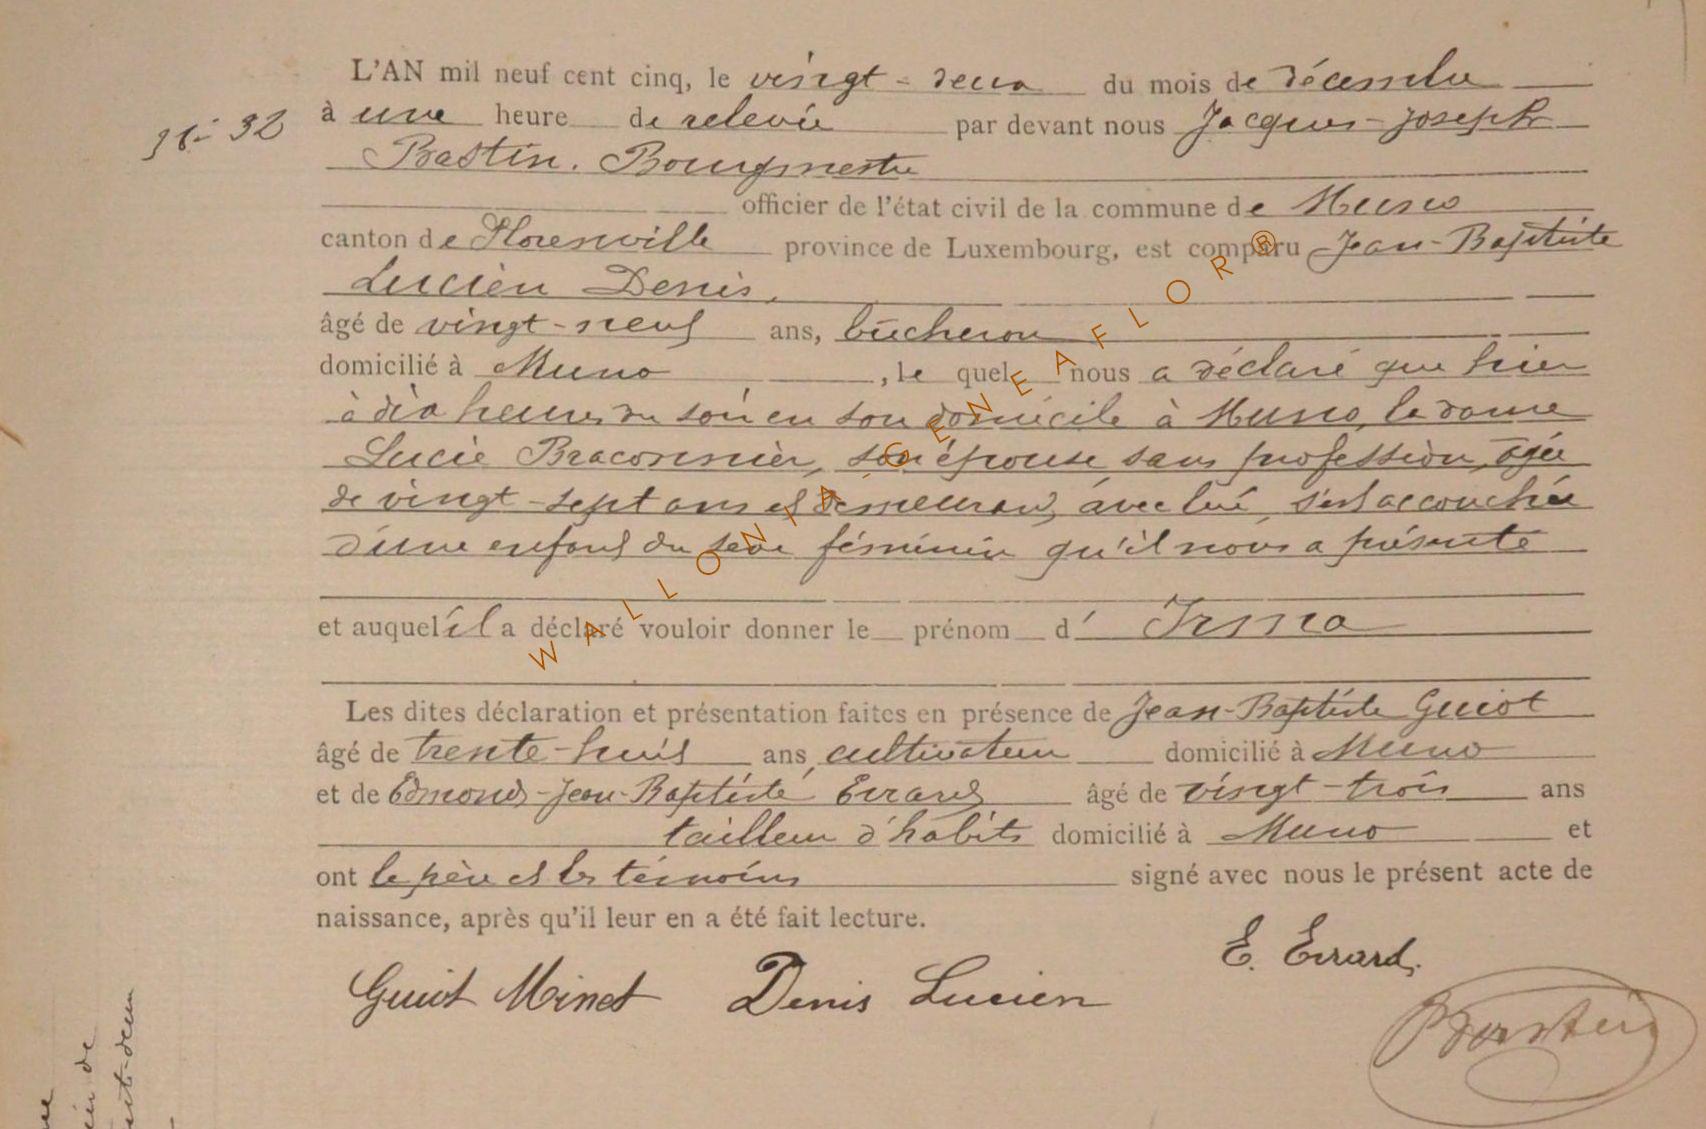 L'AN mil neuf cent cinq, le vingt-deux du mois de décembre
à une heure de relevée par devant nous Jacques-Joseph
Bastin. Bourgmestre
officier de l'état civil de la commune de Muno
canton de Florenville province de Luxembourg, est comparu Jean-Baptiste
Lucien Denis,
âgé de vingt-neuf ans, bûcheron
domicilié à Muno, le quel nous a déclaré que hier
à dix heures du soir en son domicile à Muno, la dame
Lucie Braconnier, son épouse sans profession, âgée
de vingt-sept ans et demeurant avec lui, s'est accouchée
d'une enfant du sexe féminin qu'il nous a présenté
et auquel il a déclaré vouloir donner le prénom d' Irma
Les dites déclaration et présentation faites en présence de Jean-Baptiste Guiot
âgé de trente-huit ans, cultivateur domicilié à Muno
et de Edmond-Jean-Baptiste Errard âgé de vingt-trois ans
tailleur d'habits domicilié à Muno et
ont le père et les témoins signé avec nous le présent acte de
naissance, après qu'il leur en a été fait lecture.
E. Errard.
Guiot Minet Denis Lucien
Bastin
32
WALLONIA-GENEAFLOR®